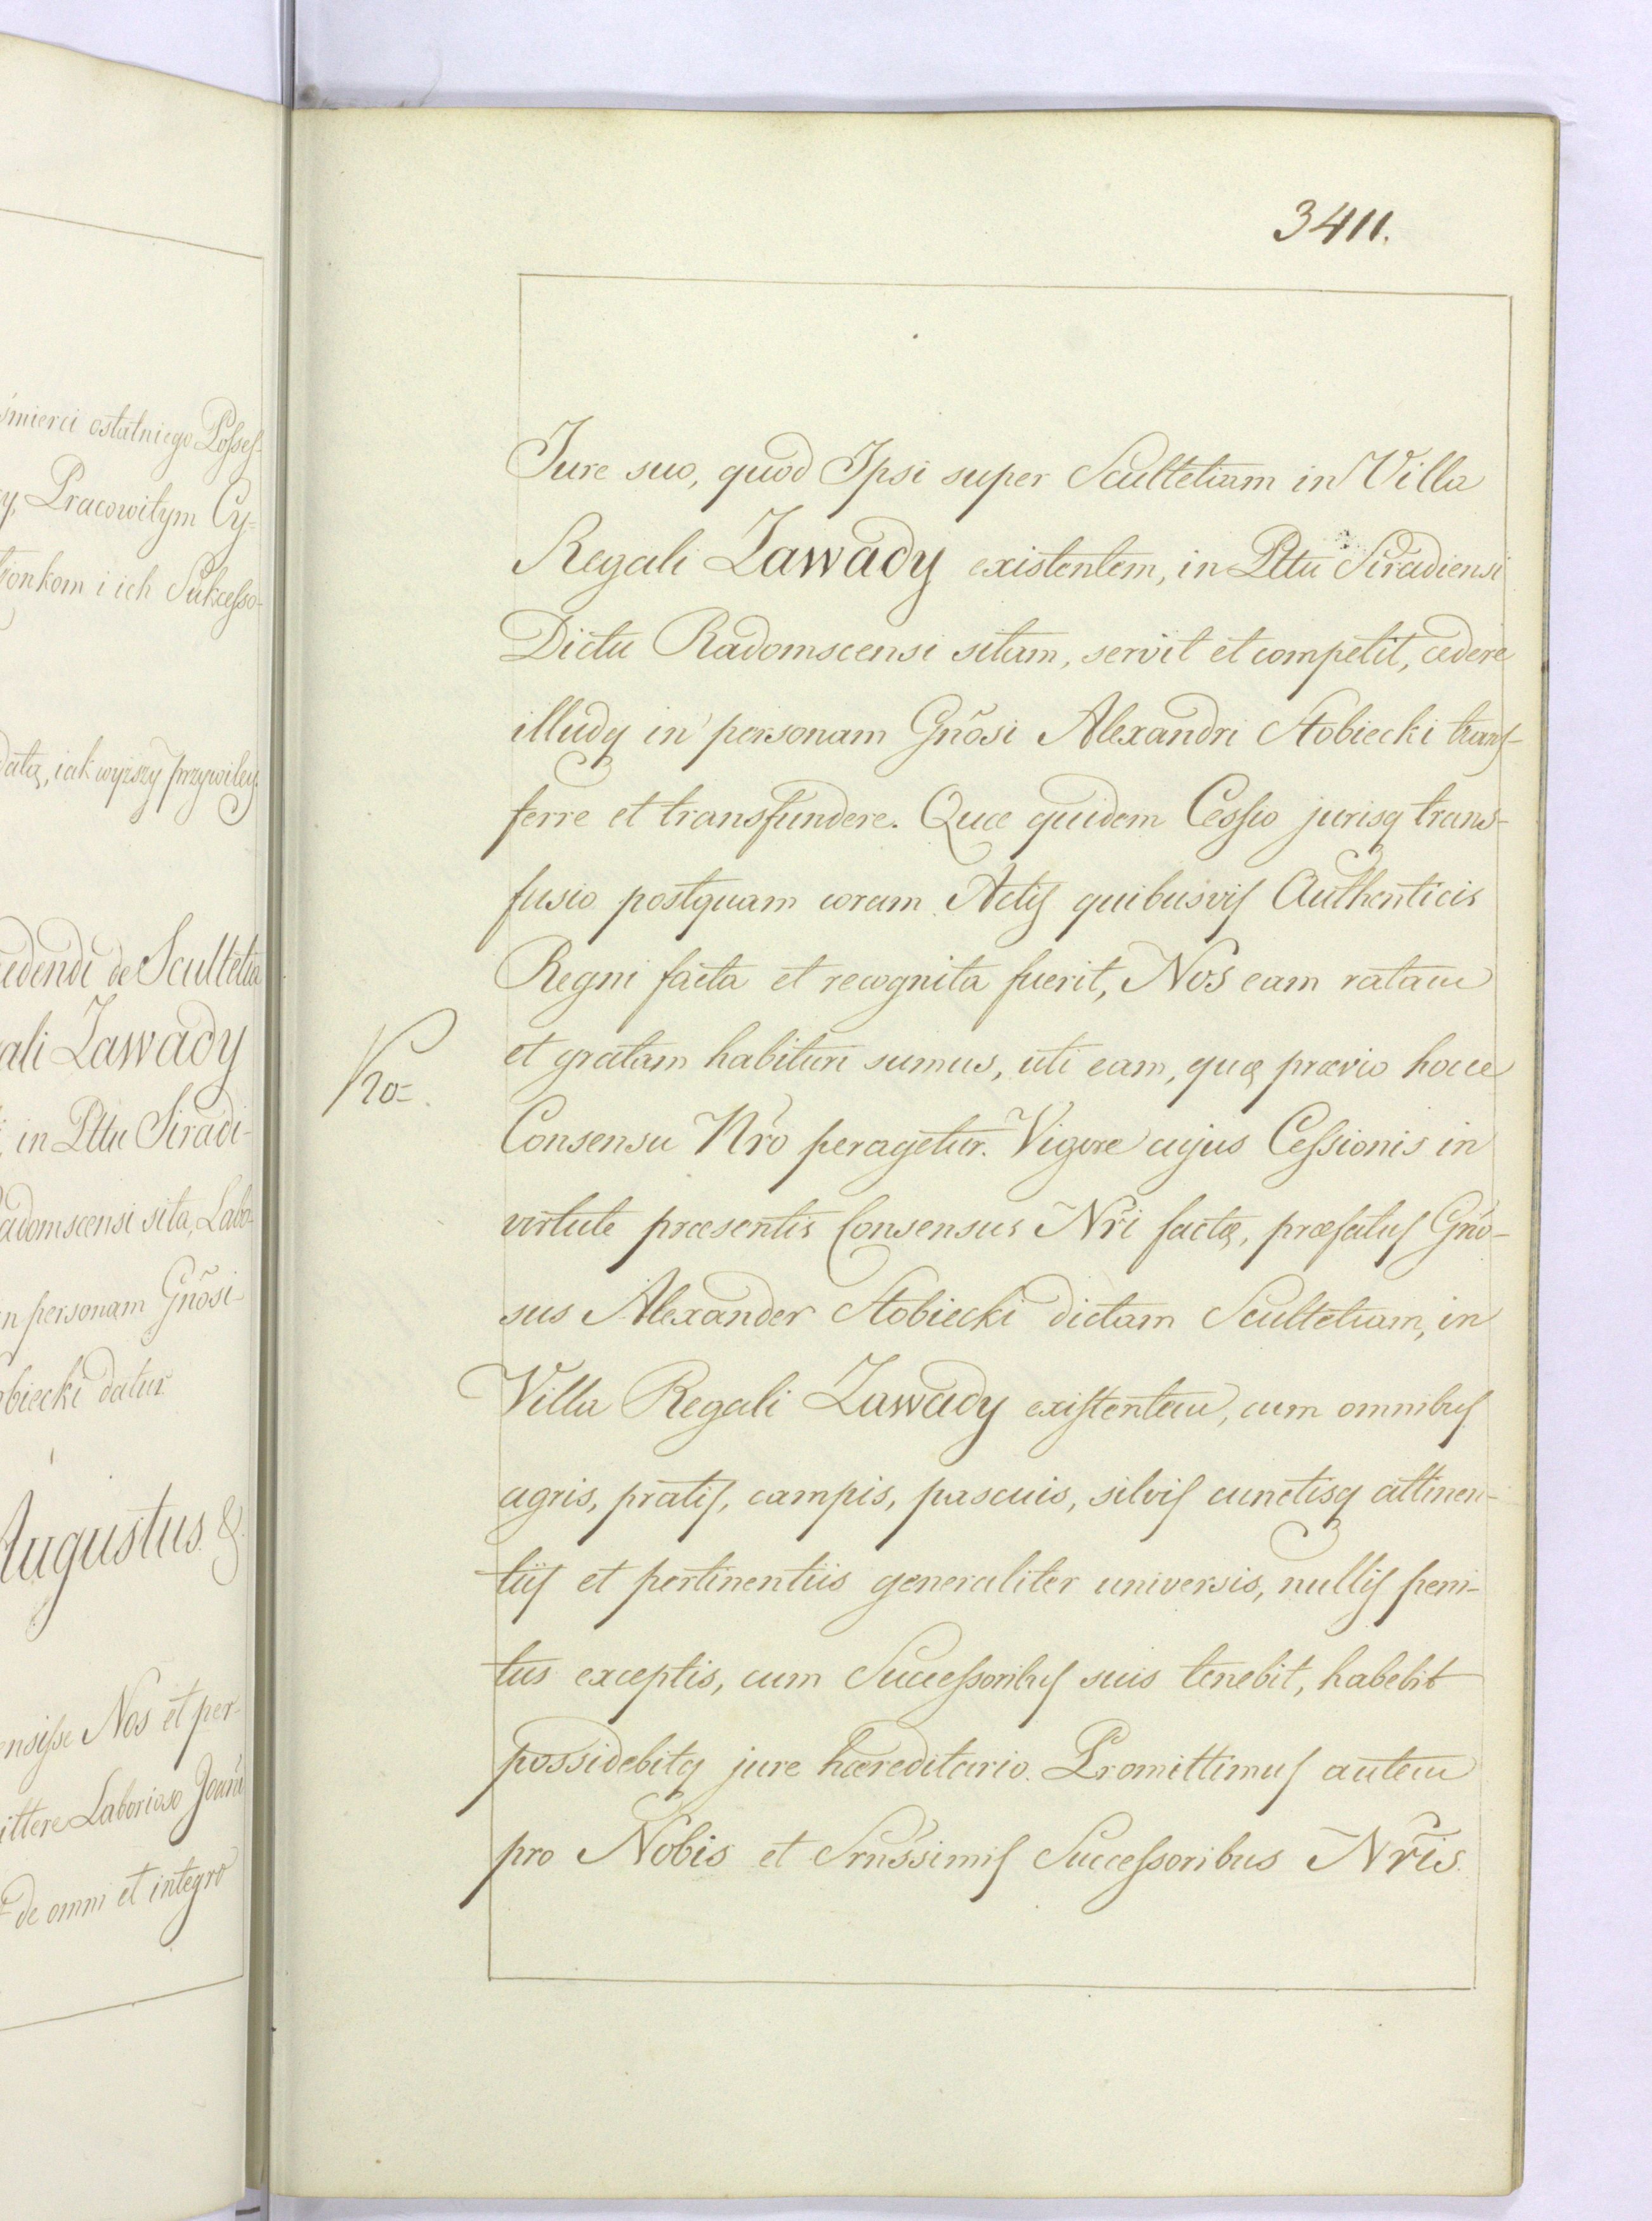 śmierci ostatniego Possess-
y, Pracowitym Cy=
żonkom i ich Sukcesso-
datą, iak wyższy przywiley.
cedendi de Scultetia
ali Zawady
in Pttu Siradi-
adomscensi sita, Labo-
in personam Gñosi
biecki datur.
Augustus &.
ensisse Nos et per-
ittere Laborioso Joanni
de omni et integro
3411.
Jure suo, quod Ipsi super Scultetiam in Villa
Regali Zawady existentem, in Pttu Siradiensi
Dictu Radomscensi sitam, servit et competit, cedere
illudq in personam Gñosi Alexandri Stobiecki trans-
ferre et transfundere. Quæ quidem Cessio jurisq trans-
fusio postquam coram Actis quibusvis Authenticis
Regni facta et recognita fuerit, Nos eam ratam
et gratam habituri sumus, uti eam, quæ prævio hocce
Consensu Nro peragetur. Vigore cujus Cessionis in
virtute præsentis Consensus Nri factæ, præfatus Gño-
sus Alexander Stobiecki dictam Scultetiam, in
Villa Regali Zawady existentem, cum omnibus
agris, pratis, campis, pascuis, silvis cunctisq attinen-
tiis et pertinentiis generaliter universis, nullis peni-
tus exceptis, cum Successoribus suis tenebit, habebit
possidebitq jure hæreditario. Promittimus autem
pro Nobis et Srnssimis Successoribus Nris